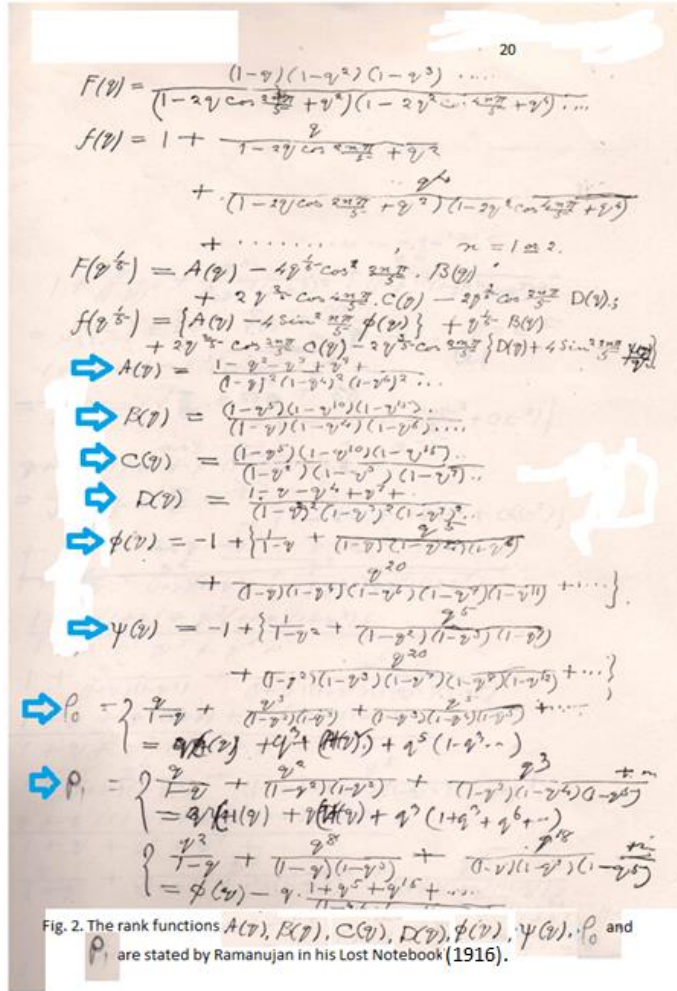 20
F(q) = (1-q)(1-q²)(1-q³) .... / (1-2q cos 2nπ/5 + q²)(1-2q² cos 4nπ/5 + q⁴)....
f(q) = 1 + q / 1-2q cos 2nπ/5 + q²
+ q⁴ / (1-2q cos 2nπ/5 + q²)(1-2q² cos 4nπ/5 + q⁴)
+ ........ , n = 1 or 2.
F(q^1/5) = A(q) - 4q^1/5 cos² 2nπ/5 . B(q)
+ 2q^2/5 cos 4nπ/5 . C(q) - 2q^3/5 cos 2nπ/5 D(q).;
f(q^1/5) = {A(q) - 4 sin² nπ/5 φ(q)} + q^1/5 B(q)
+ 2q^2/5 cos 4nπ/5 C(q) - 2q^3/5 cos 2nπ/5 {D(q) + 4 sin² 2nπ/5 ψ(q)/q}
A(q) = 1-q²-q³+q⁹+ / (1-q)²(1-q⁴)²(1-q⁶)² ...
B(q) = (1-q⁵)(1-q¹⁰)(1-q¹⁵).. / (1-q)(1-q⁴)(1-q⁶)....
C(q) = (1-q⁵)(1-q¹⁰)(1-q¹⁵).. / (1-q²)(1-q³)(1-q⁷)...
D(q) = 1-q-q⁴+q⁷+.. / (1-q²)²(1-q³)²(1-q⁷)²..
φ(q) = -1 + {1/1-q + q⁵ / (1-q)(1-q⁴)(1-q⁶)
+ q²⁰ / (1-q)(1-q⁴)(1-q⁶)(1-q⁹)(1-q¹¹) + ...}.
ψ(q) = -1 + {1/1-q² + q⁵ / (1-q²)(1-q³)(1-q⁷)
+ q²⁰ / (1-q²)(1-q³)(1-q⁷)(1-q⁸)(1-q¹²) + ...}
ρ₀ = { q/1-q + q³ / (1-q²)(1-q³) + q⁵ / (1-q³)(1-q⁴)(1-q⁵) + ....
ρ₁ = { q/1-q + q² / (1-q²)(1-q³) + q³ / (1-q³)(1-q⁴)(1-q⁵)
+ q³(1+q³+q⁶+..)
{ q²/1-q + q⁸ / (1-q)(1-q³) + q¹⁸ / (1-q)(1-q³)(1-q⁵)
= φ(q) - q . 1+q⁵+q¹⁵+....
Fig. 2. The rank functions A(q), B(q), C(q), D(q), φ(q), ψ(q), ρ₀ and
ρ₁ are stated by Ramanujan in his Lost Notebook (1916).